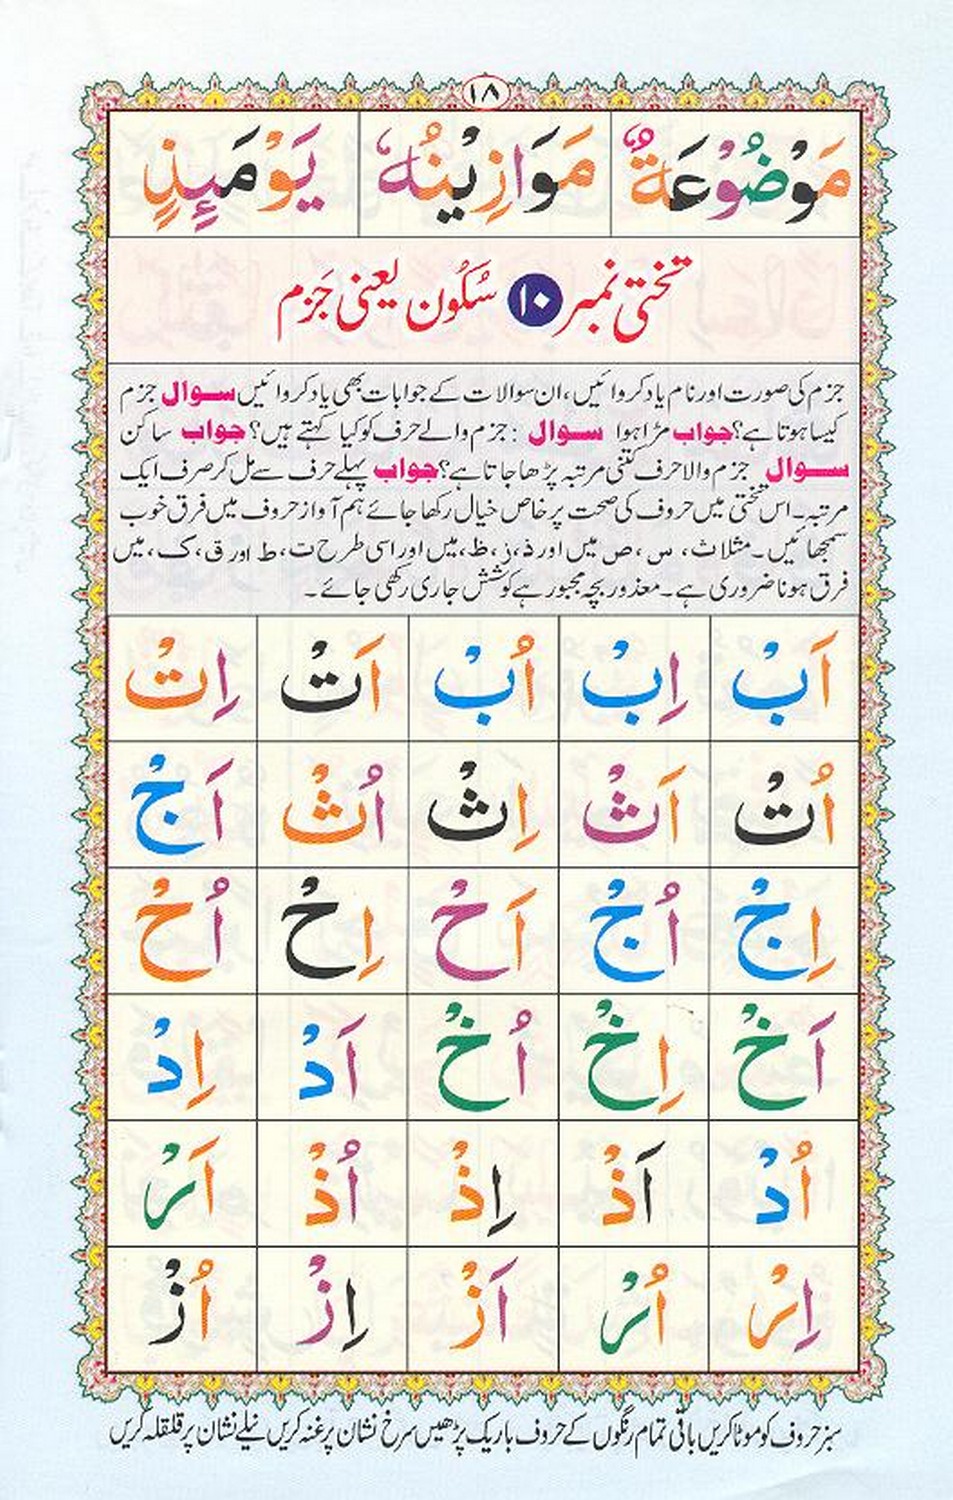 ١٨
مَوْضُوْعَةٌ مَوَازِيْنُهٗ يَوْمَئِذٍ
تختی نمبر ١٠ سُکُون یعنی جَزم
جزم کی صورت اور نام یاد کروائیں، ان سوالات کے جوابات بھی یاد کروائیں سوال جزم
کیسا ہوتا ہے؟ جواب مڑا ہوا سوال : جزم والے حرف کو کیا کہتے ہیں؟ جواب ساکن
سوال جزم والا حرف کتنی مرتبہ پڑھا جاتا ہے؟ جواب پہلے حرف سے مل کر صرف ایک
مرتبہ۔ اس تختی میں حروف کی صحت پر خاص خیال رکھا جائے ہم آواز حروف میں فرق خوب
سمجھائیں۔ مثلا ث، س، ص میں اور ذ، ز، ظ، میں اور اسی طرح ت، ط اور ق، ک، میں
فرق ہونا ضروری ہے۔ معذور بچہ مجبور ہے کوشش جاری رکھی جائے۔
اَبْ اِبْ اُبْ اَتْ اِتْ
اُتْ اَثْ اِثْ اُثْ اَجْ
اِجْ اُجْ اَحْ اِحْ اُحْ
اَخْ اِخْ اُخْ اَدْ اِدْ
اُدْ اَذْ اِذْ اُذْ اَرْ
اِرْ اُرْ اَزْ اِزْ اُزْ
سبز حروف کو موٹا کریں باقی تمام رنگوں کے حروف باریک پڑھیں سرخ نشان پر غنہ کریں نیلے نشان پر قلقلہ کریں